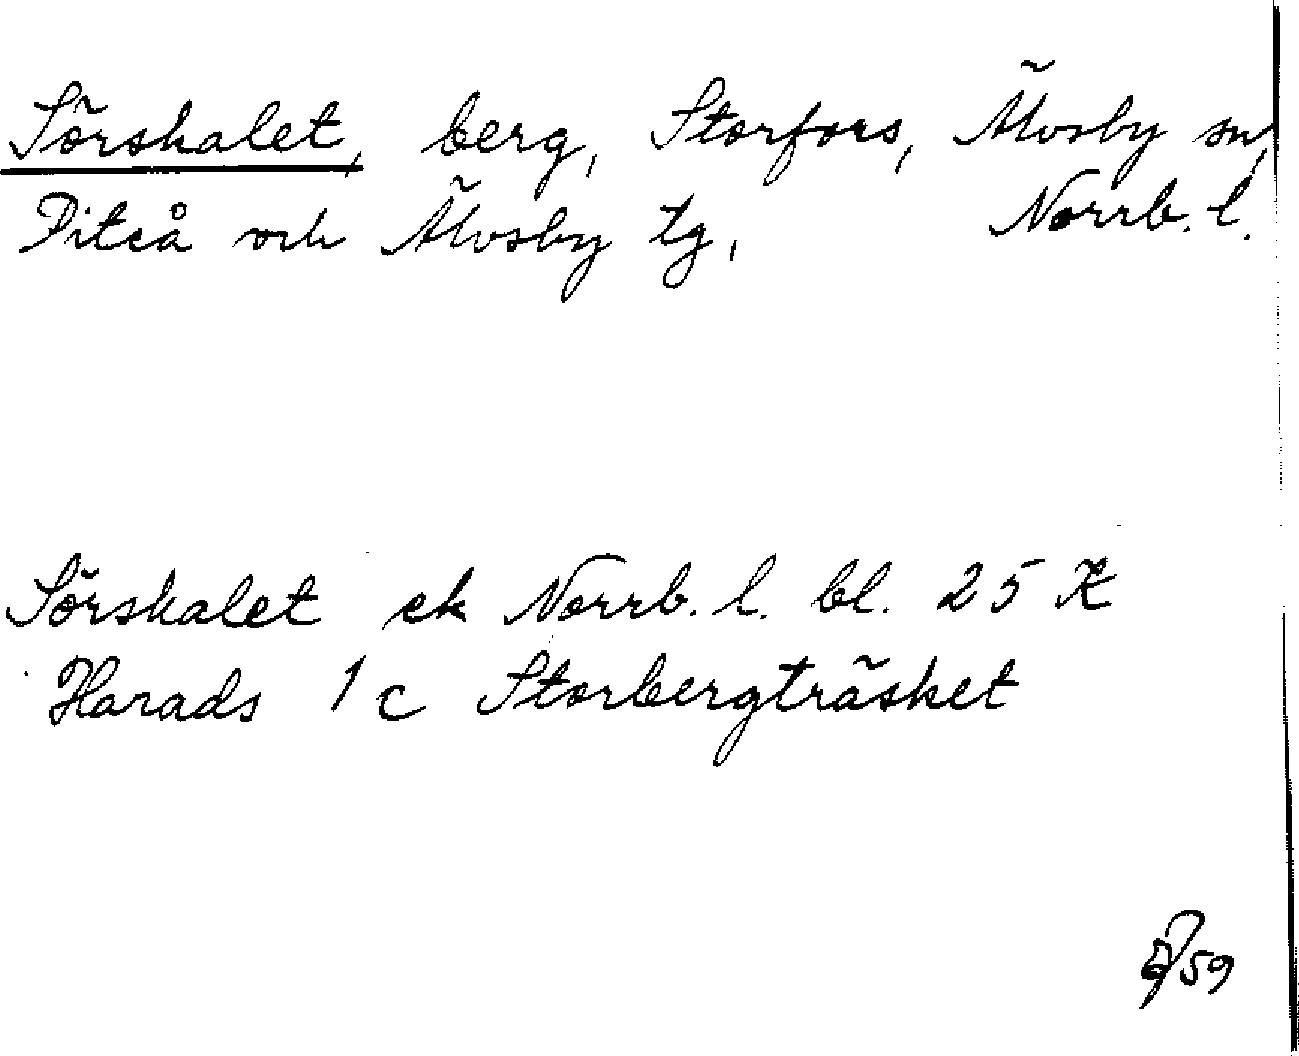 Sörskalet, berg, Storfors, Älvsby sn,
Piteå och Älvsby tg, Norrb. l.
Sörskalet ek Norrb. l. bl. 25 K
Harads 1 c Storbergträsket
59